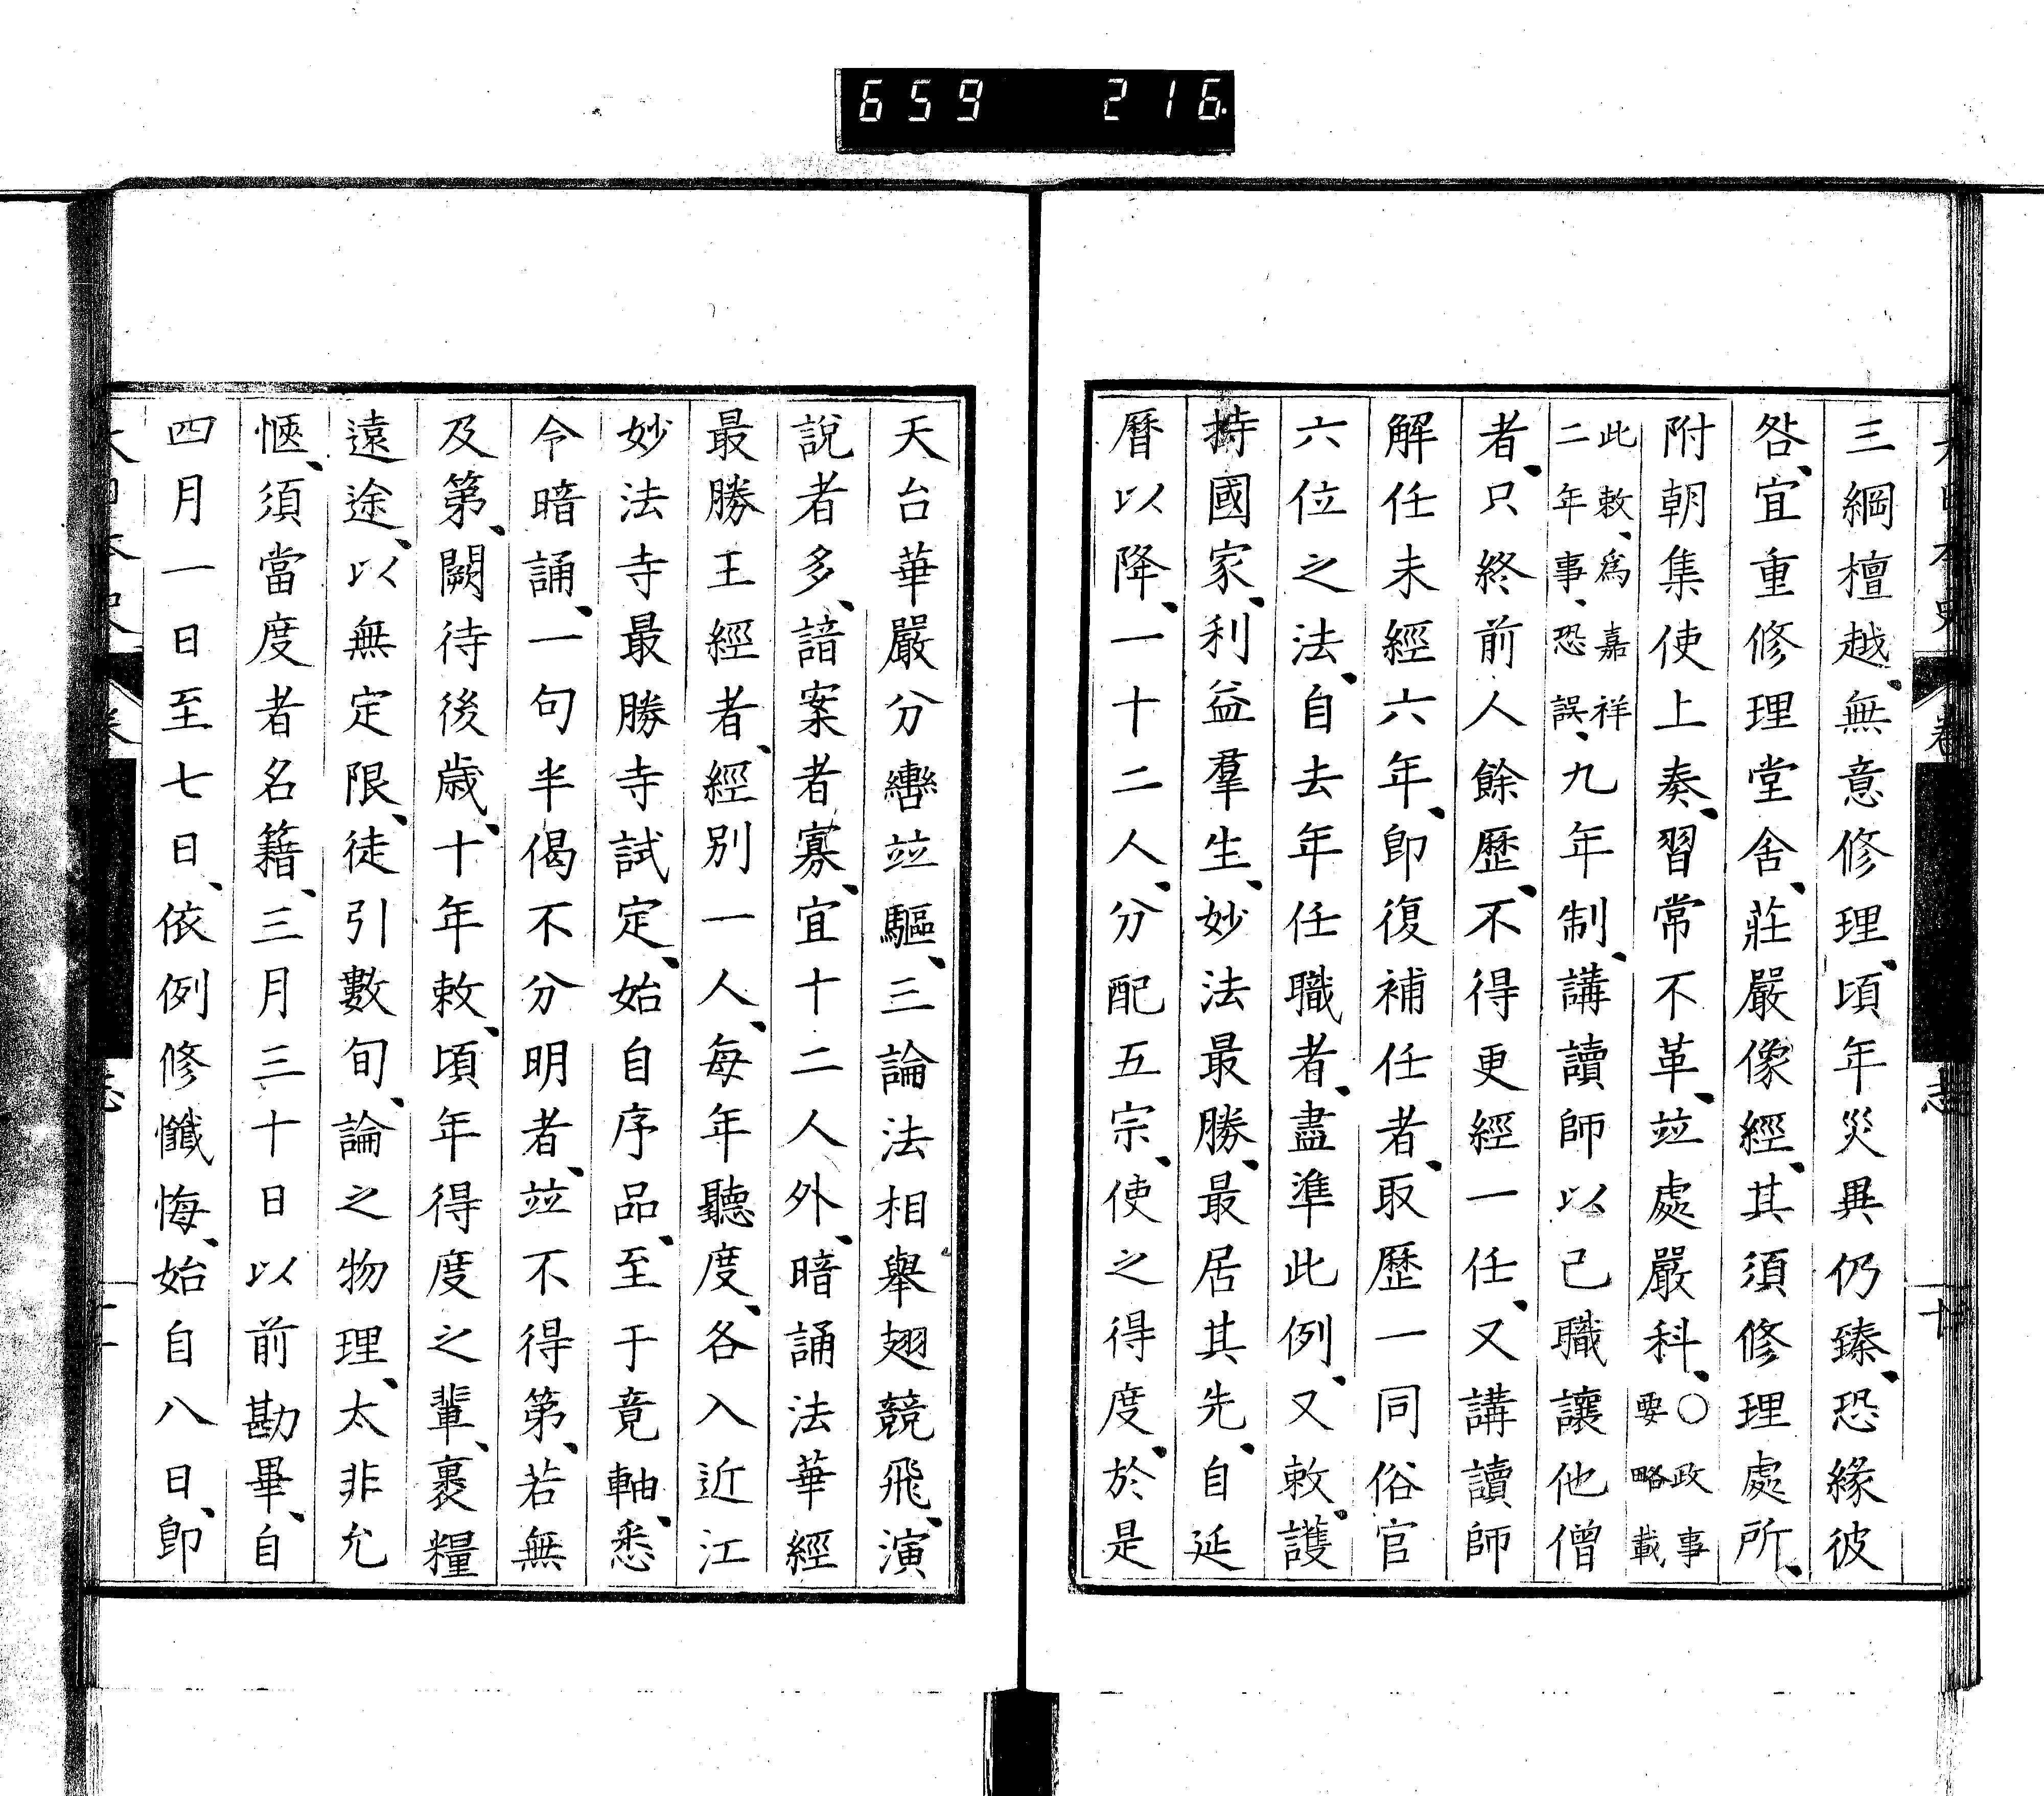 659 216
三綱檀越、無意修理、頃年災異仍臻、恐緣彼
咎、宜重修理堂舍、莊嚴像經、其須修理處所、
附朝集使上奏、習常不革、竝處嚴科、○政事要略載
此敕、爲嘉祥二年事、恐誤、九年制、講讀師以己職讓他僧
者、只終前人餘歷、不得更經一任、又講讀師
解任未經六年、卽復補任者、取歷一同俗官
六位之法、自去年任職者、盡準此例、又敕、護
持國家、利益羣生、妙法最勝、最居其先、自延
曆以降、一十二人、分配五宗、使之得度、於是
天台華嚴分轡竝驅、三論法相舉翅競飛、演
說者多、諳案者寡、宜十二人外、暗誦法華經
最勝王經者、經別一人、每年聽度、各入近江
妙法寺最勝寺試定、始自序品、至于竟軸、悉
令暗誦、一句半偈不分明者、竝不得第、若無
及第、闕待後歲、十年敕、頃年得度之輩、裹糧
遠途、以無定限、徒引數旬、論之物理、太非允
愜、須當度者名籍、三月三十日以前勘畢、自
四月一日至七日、依例修懺悔、始自八日、卽